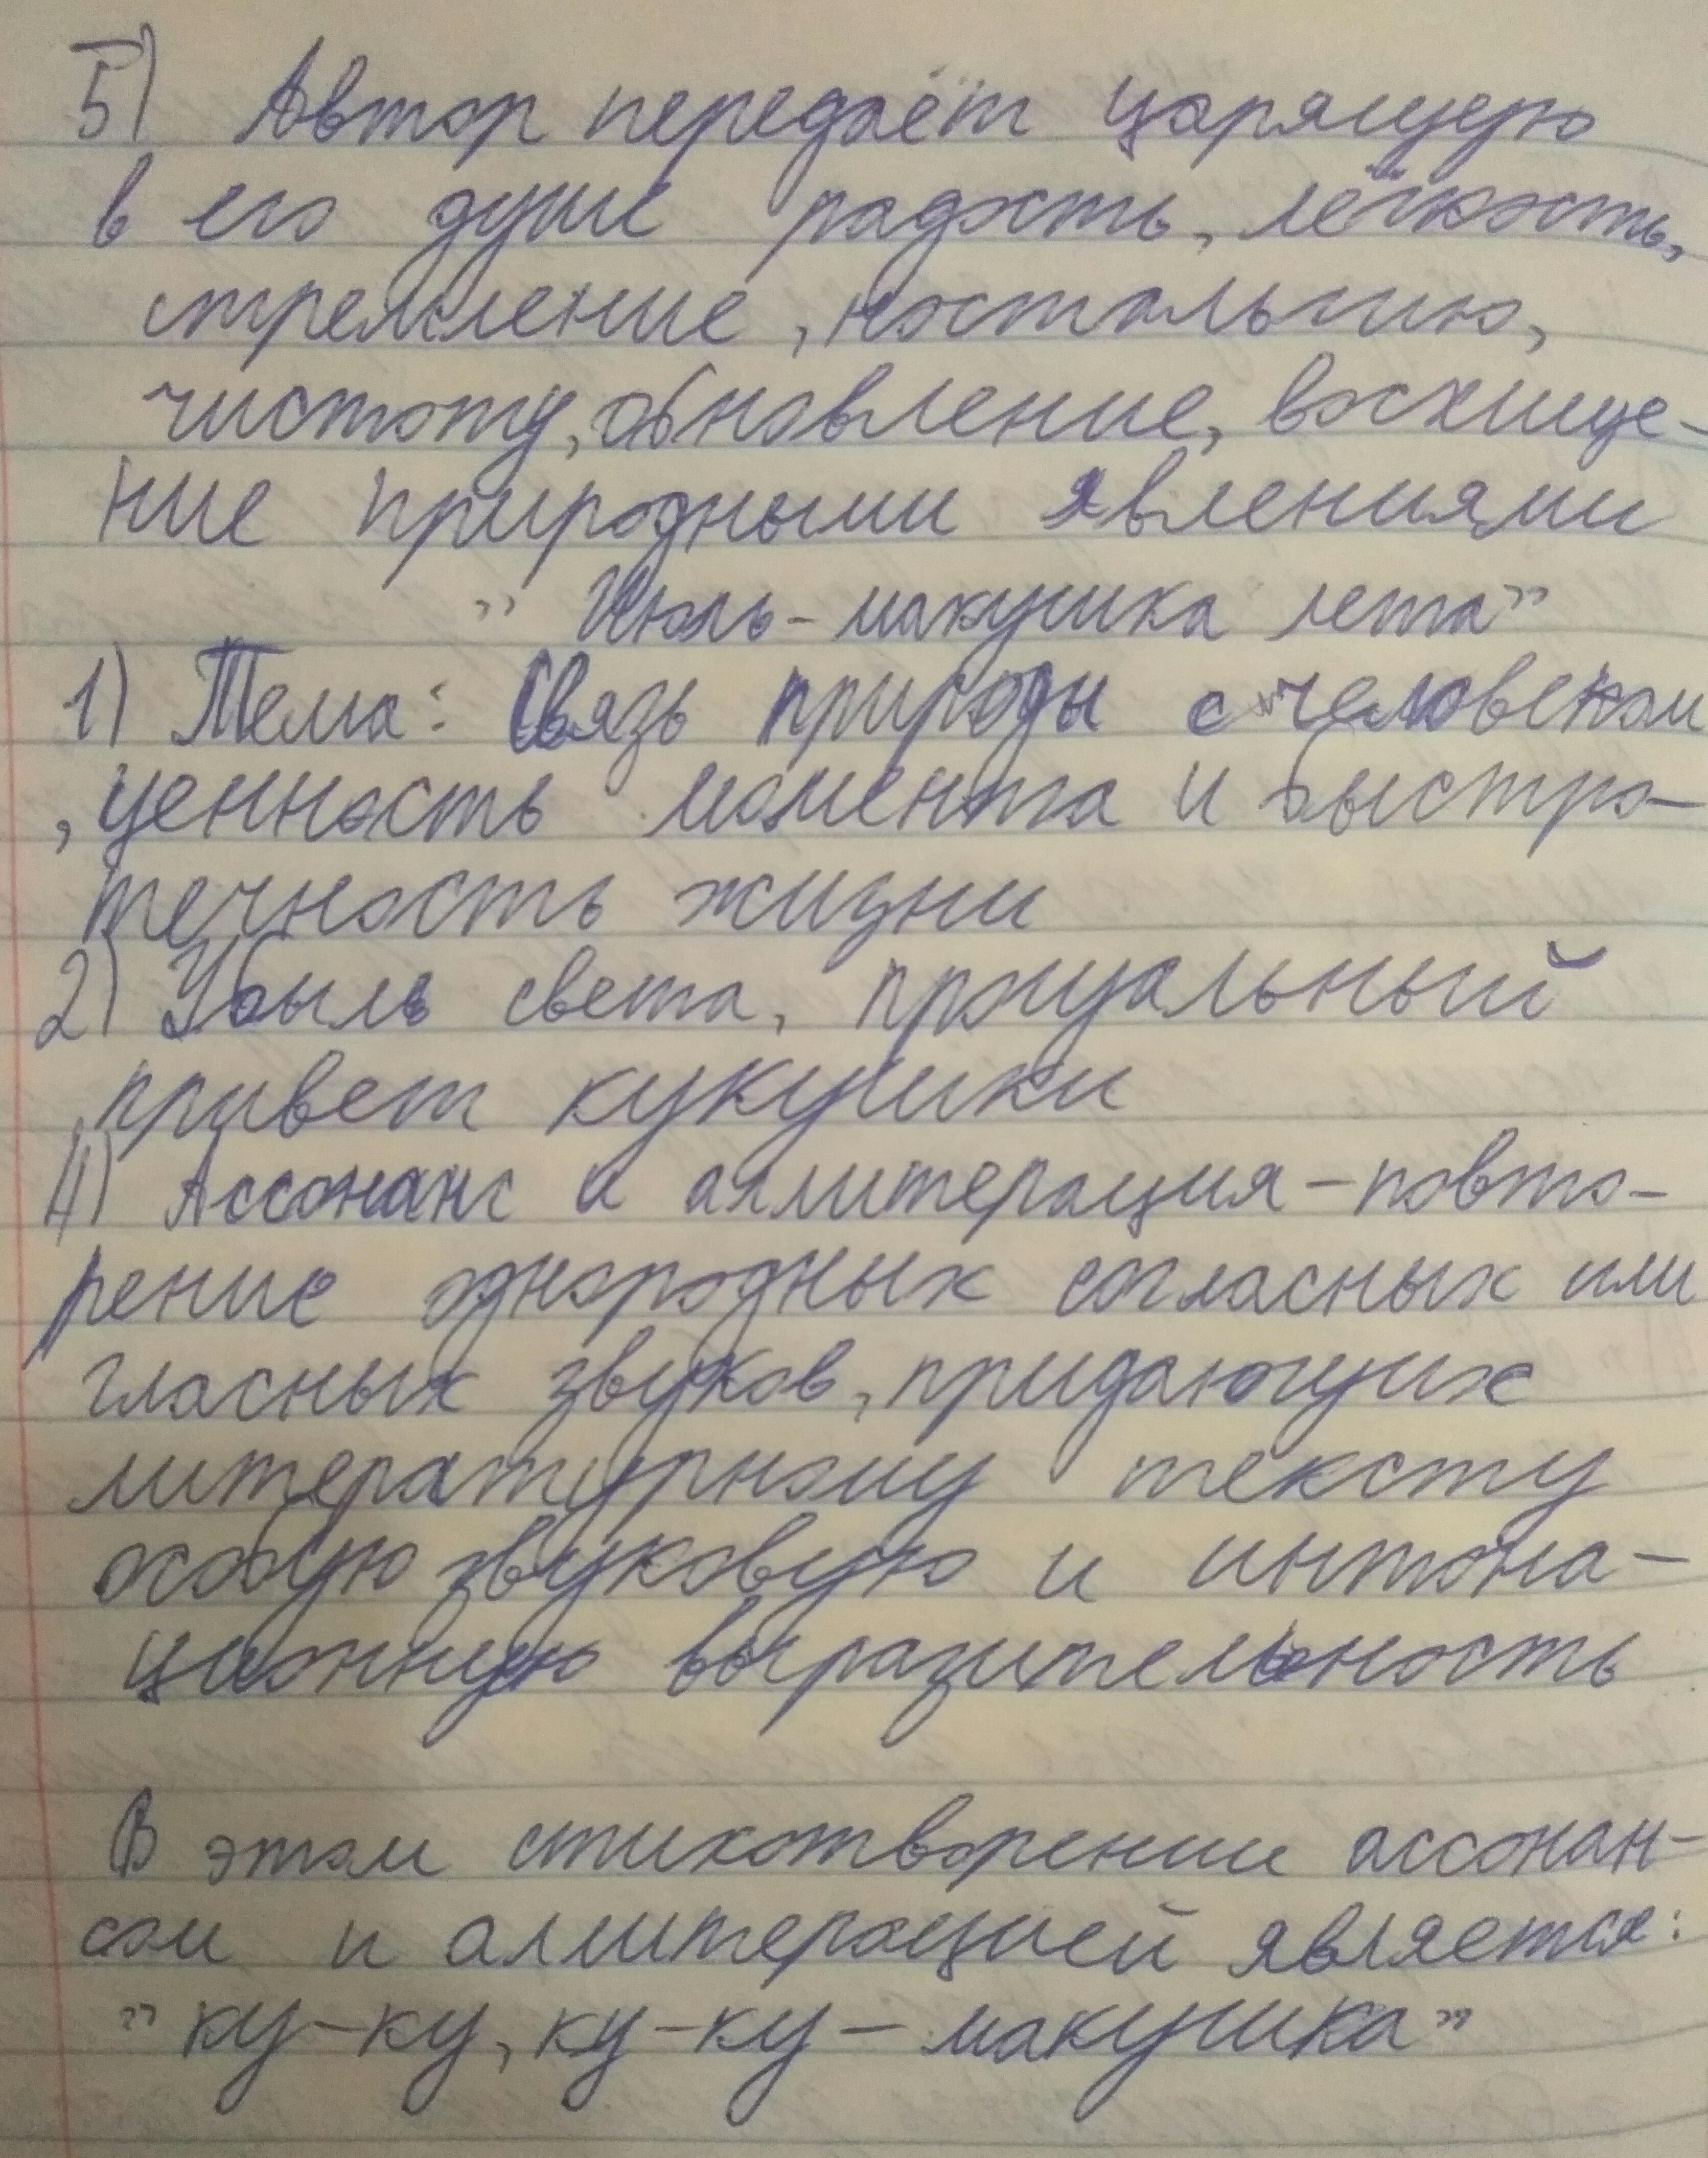 5) Автор передаёт царящую
в его душе радость, лёгкость,
стремление, ностальгию,
чистоту, обновление, восхище-
ние природными явлениями
"Июль - макушка лета"
1) Тема: Связь природы с человеком
, ценность момента и быстро-
течность жизни
2) Убыль света, прощальный
привет кукушки
4) Ассонанс и аллитерация - повто-
рение однородных согласных или
гласных звуков, придающих
литературному тексту
особую звуковую и интона-
ционную выразительность
В этом стихотворении ассонан-
сом и алитерацией является:
"ку-ку, ку-ку - макушка"